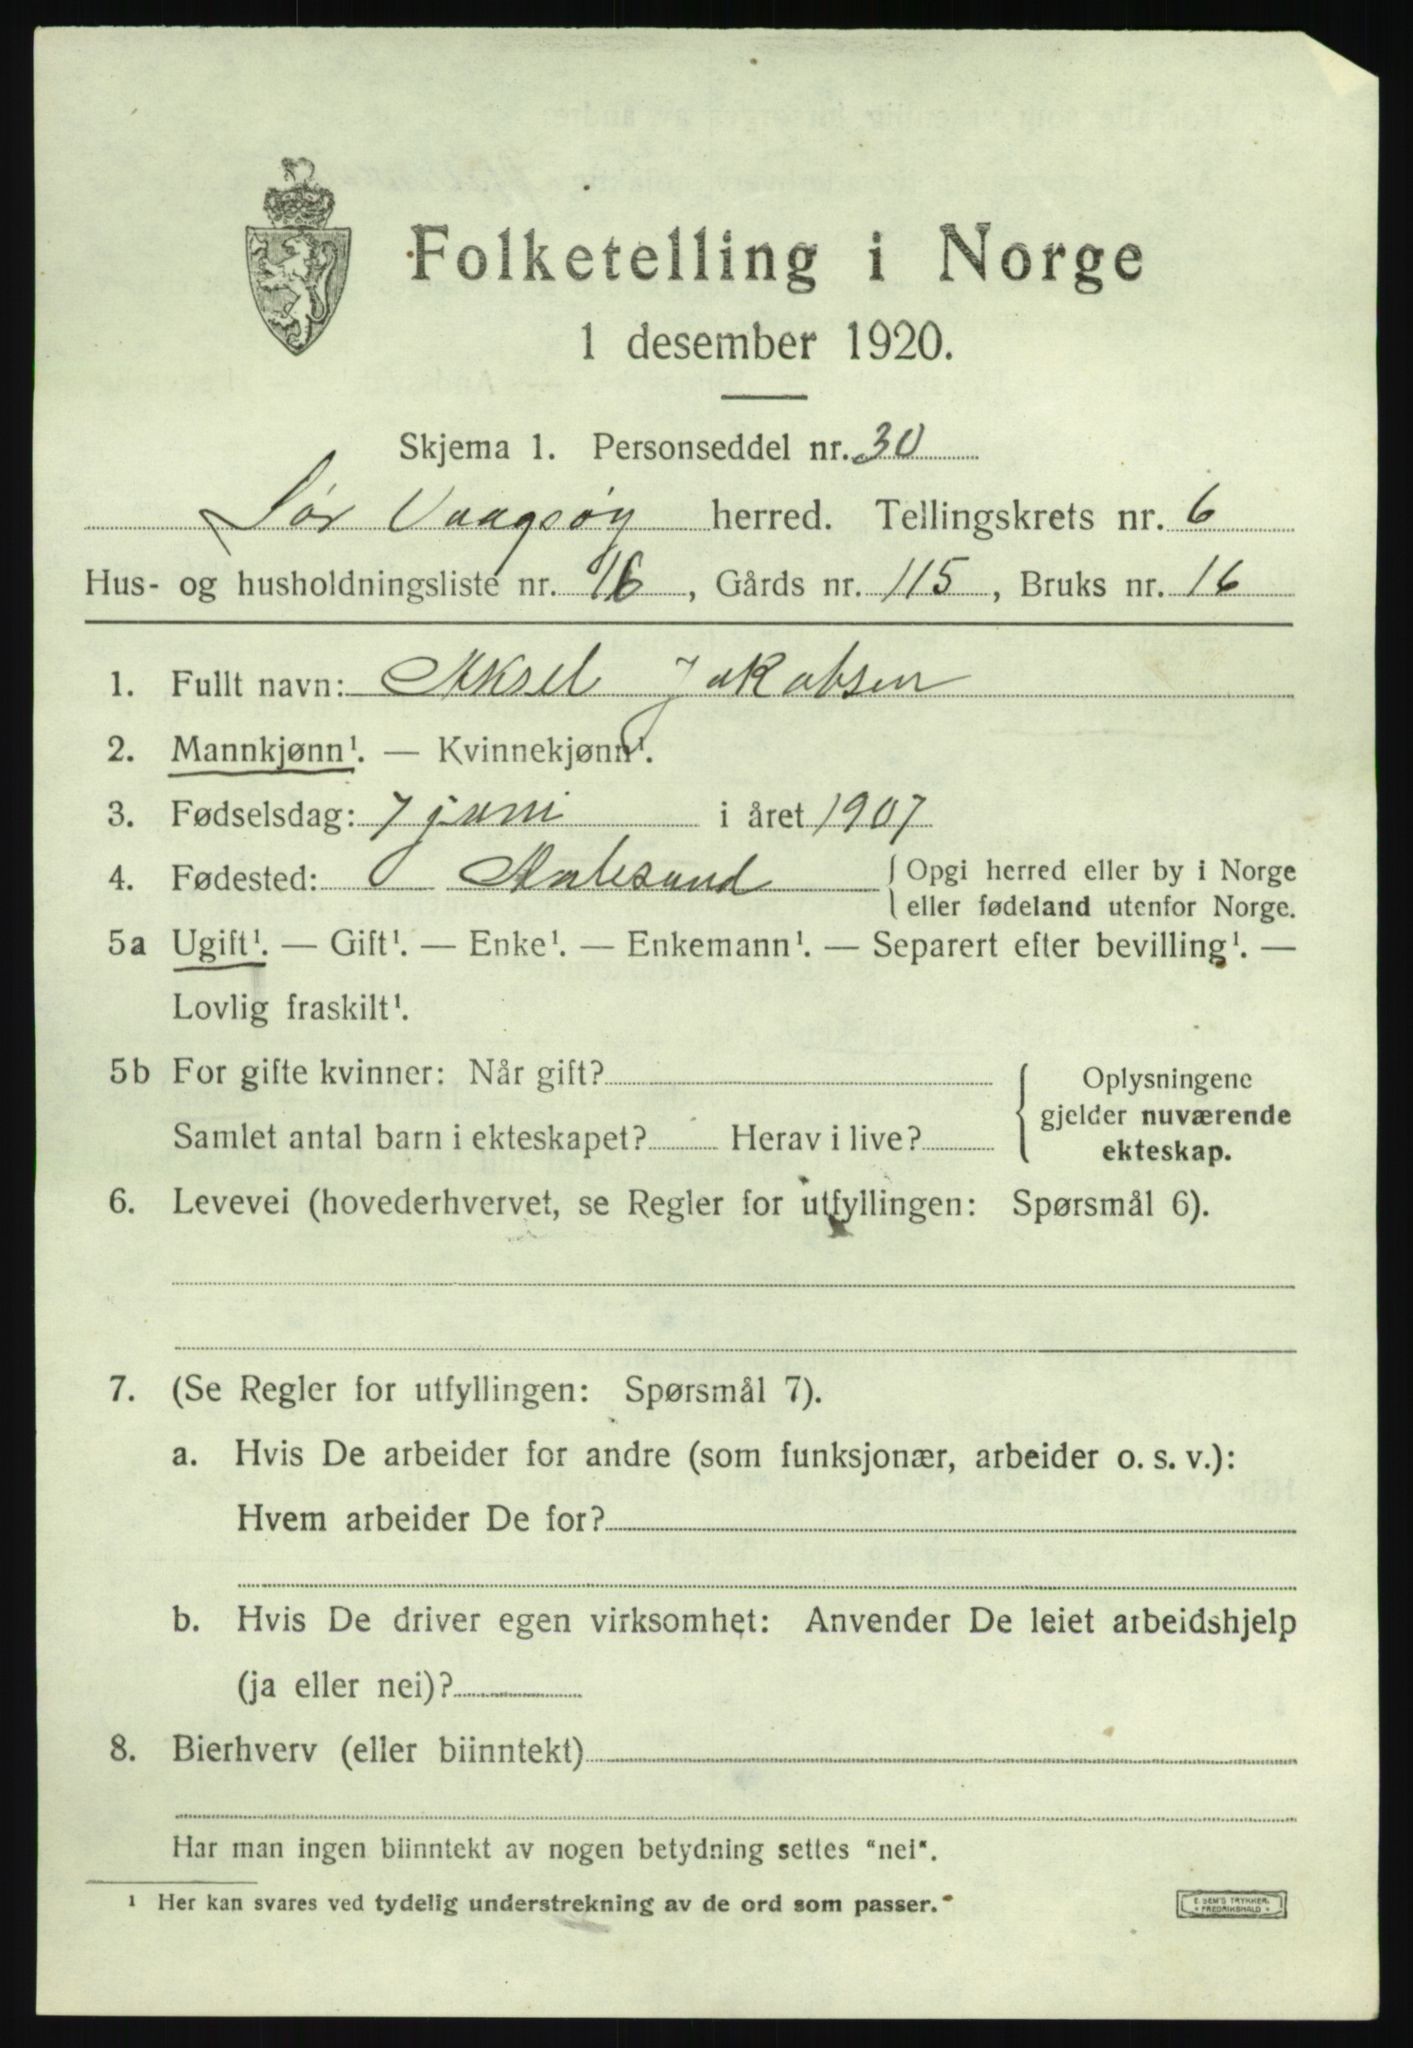 Folketelling i Norge
1 desember 1920.
Skjema 1. Personseddel nr. 30
Sør Vaagsøy herred. Tellingskrets nr. 6
Hus- og husholdningsliste nr. 16, Gårds nr. 115, Bruks nr. 16
1. Fullt navn: Aksel Jakobsen
2. Mannkjønn¹. — Kvinnekjønn¹.
3. Fødselsdag: 7 juni i året 1907
4. Fødested: Aalesund { Opgi herred eller by i Norge
eller fødeland utenfor Norge.
5a Ugift¹. — Gift¹. — Enke¹. — Enkemann¹. — Separert efter bevilling¹. —
Lovlig fraskilt¹.
5b For gifte kvinner: Når gift? { Oplysningene
gjelder nuværende
Samlet antal barn i ekteskapet? Herav i live?
ekteskap.
6. Levevei (hovederhvervet, se Regler for utfyllingen: Spørsmål 6).
7. (Se Regler for utfyllingen: Spørsmål 7).
a. Hvis De arbeider for andre (som funksjonær, arbeider o. s. v.):
Hvem arbeider De for?
b. Hvis De driver egen virksomhet: Anvender De leiet arbeidshjelp
(ja eller nei)?
8. Bierhverv (eller biinntekt)
Har man ingen biinntekt av nogen betydning settes "nei".
¹ Her kan svares ved tydelig understrekning av de ord som passer.
E. SEM'S TRYKKERI
FREDRIKSHALD